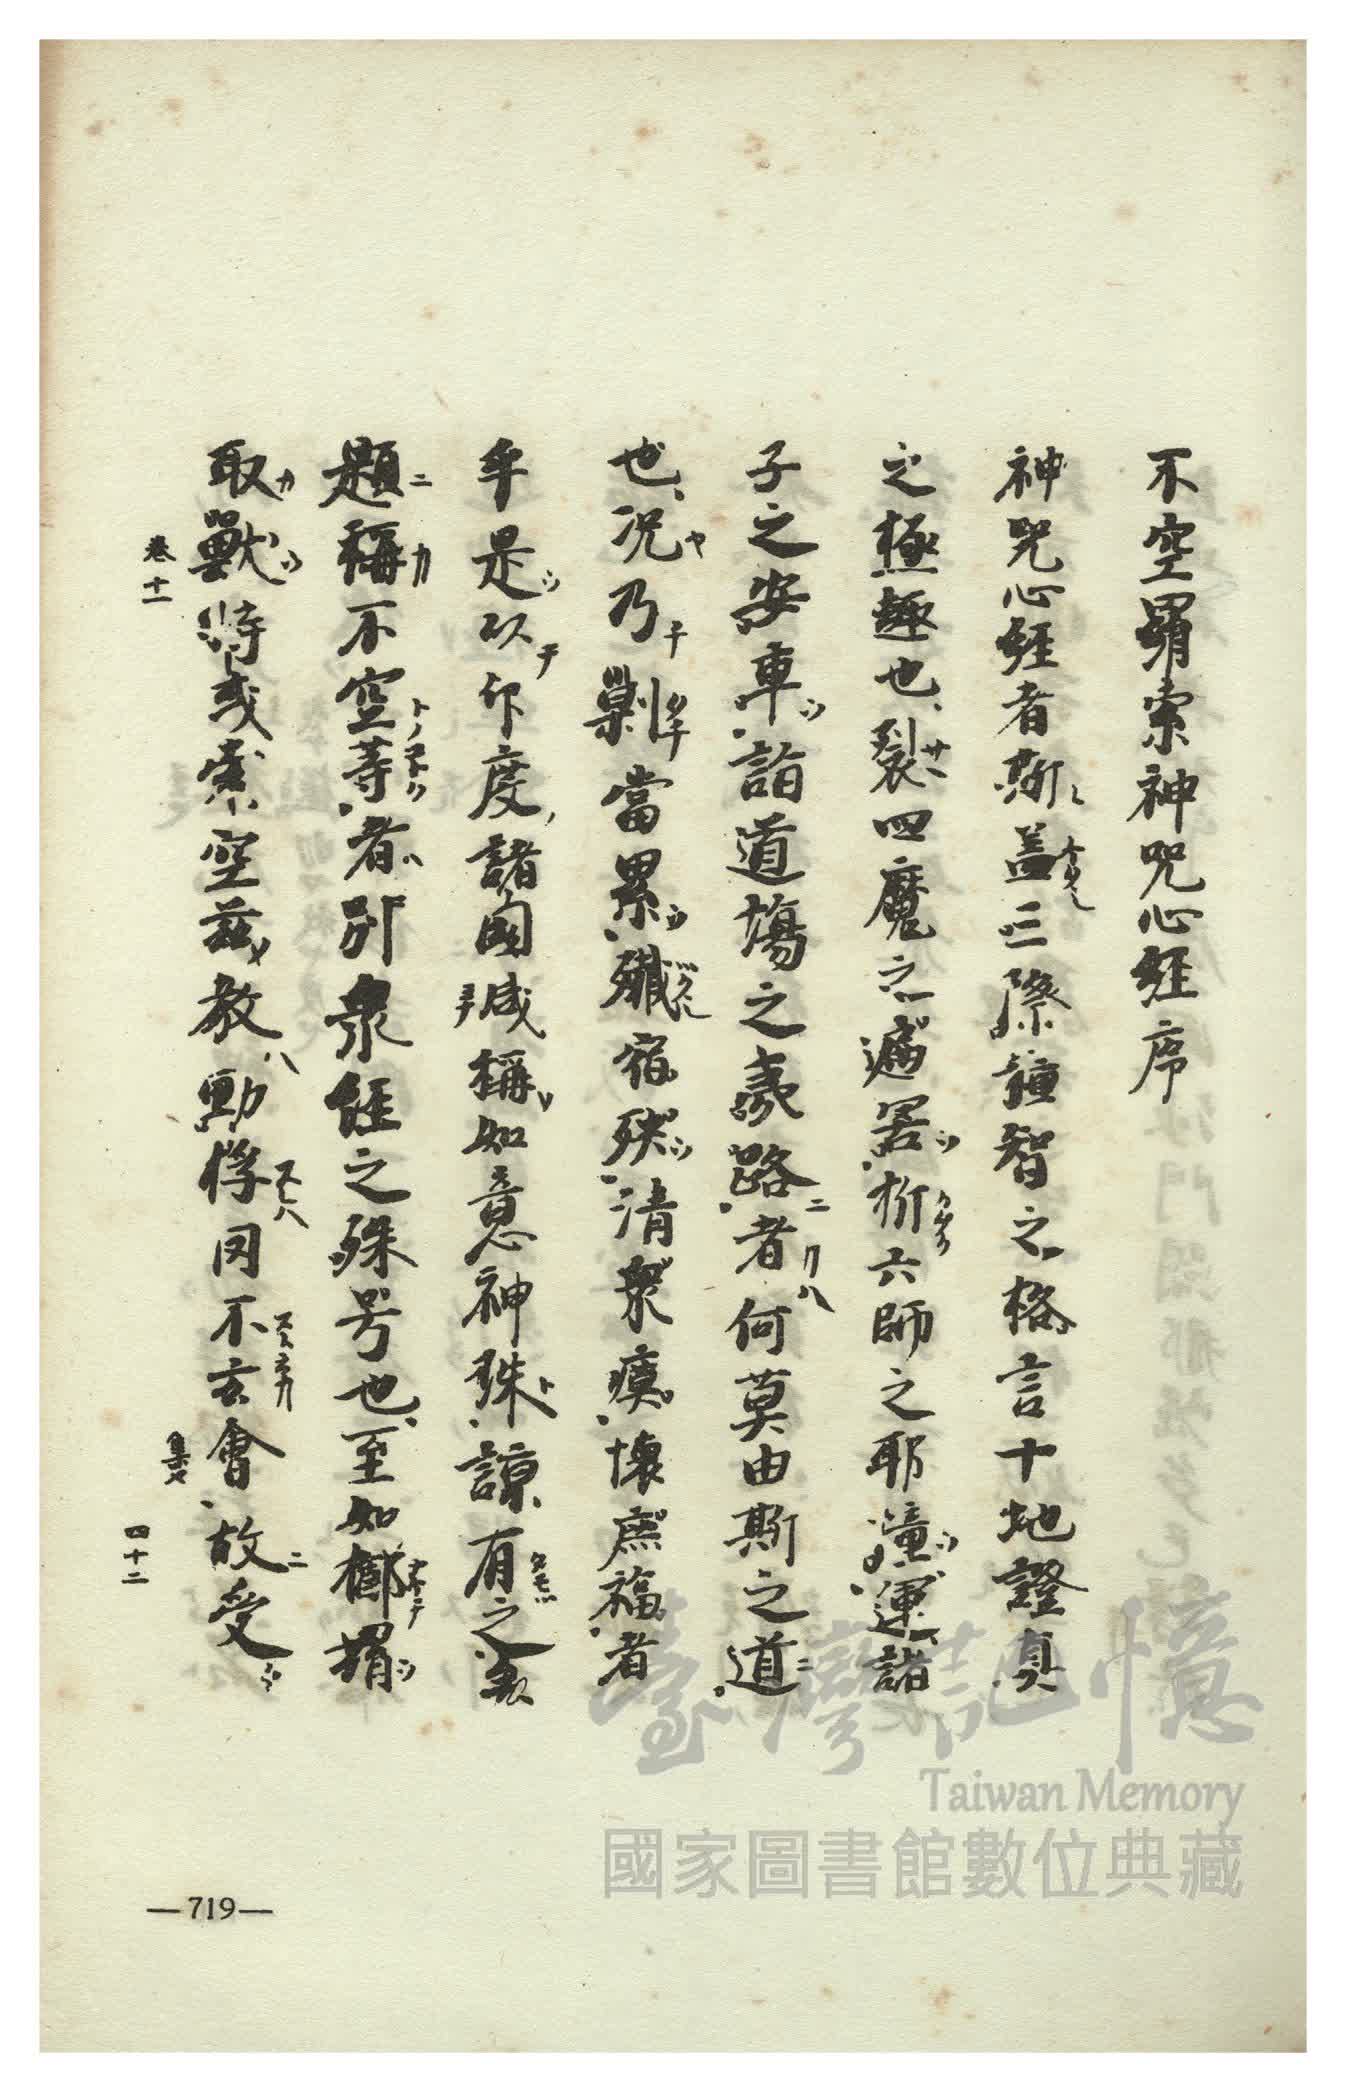 不空羂索神咒心經序
神咒心經者斯盖三際種智之格言十地證真
之極趣也裂四魔之遍罟析六師之耶㠉運諸
子之安車詣道場之夷路者何莫由斯之道
也況乃剿當累殲宿殃清衆瘼懷庶福者
乎是以印度諸國咸稱如意神珠諒有之矣
題稱不空等者別衆經之殊号也至如擲羂
取獸時或索空茲教勳修同不玄會故受
卷十一
集文
四十二
—719—
臺灣記憶
Taiwan Memory
國家圖書館數位典藏